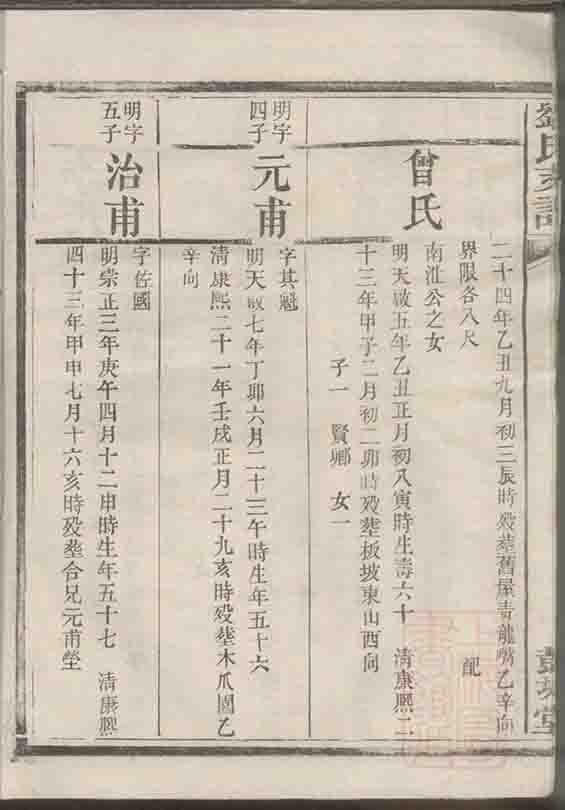 劉氏支譜
彭城堂
二十四年乙丑九月初三辰時歿塟舊屋青龍嘴乙辛向
界限各八尺　配
曾氏
南淮公之女
明天啟五年乙丑正月初八寅時生壽六十　清康熙二
十三年甲子二月初二卯時歿塟板坡東山西向
子一　賢鄉　女一
明字
四子
元甫
字其魁
明天啟七年丁卯六月二十三午時生年五十六
清康熙二十一年壬戌正月二十九亥時歿塟木爪園乙
辛向
明字
五子
治甫
字佐國
明崇正三年庚午四月十二申時生年五十七　清康熙
四十三年甲申七月十六亥時歿塟合兄元甫塋